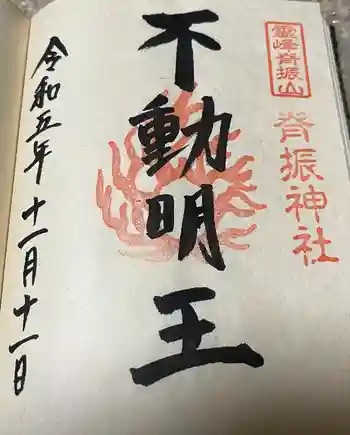 霊峰脊振山
脊振神社
不動明王
令和五年十一月十一日